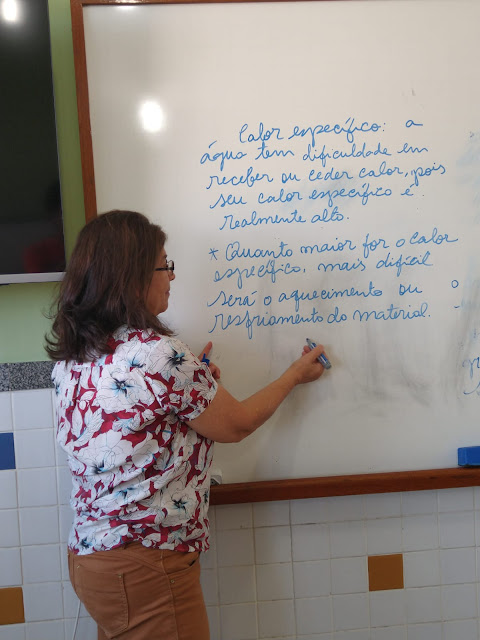 Calor específico: a
água tem dificuldade em
receber ou ceder calor, pois
seu calor específico é
realmente alto.
* Quanto maior for o calor
específico, mais difícil
será o aquecimento ou
resfriamento do material.
o